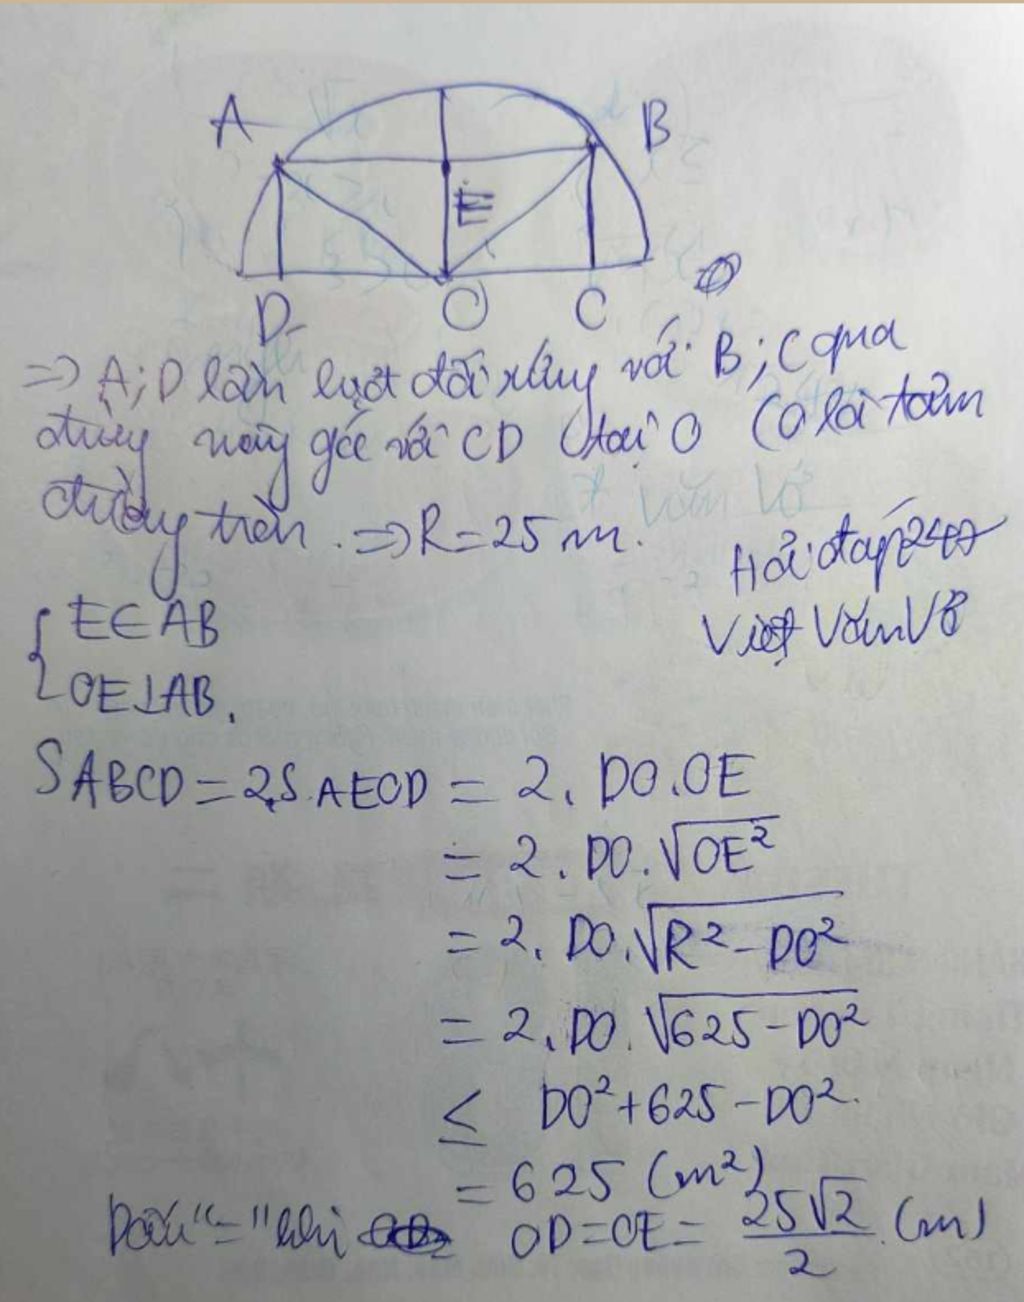 A
B
E
D
O
C
=> A; D lần lượt đối xứng với B; C qua
đường vuông góc với CD tại O (O là tâm
đường tròn. => R = 25 m.
Hỏi đáp 247
Việt Văn Võ
{ E ∈ AB
OE ⊥ AB.
S ABCD = 2.S AEOD = 2. DO.OE
= 2. DO. √OE²
= 2. DO. √R² - DO²
= 2. DO. √625 - DO²
≤ DO² + 625 - DO².
= 625 (m²)
Dấu "=" khi OD = OE = 25√2/2 (m)